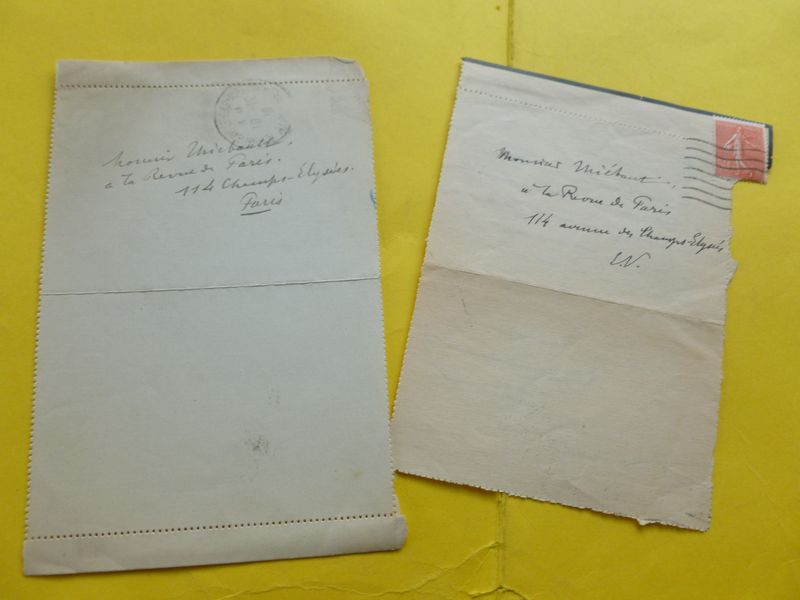 Monsieur Thiébault,
à la Revue de Paris.
114 Champs-Elysées.
Paris
Monsieur Thiébaut,
à la Revue de Paris
114 avenue des Champs-Elysées
E.V.